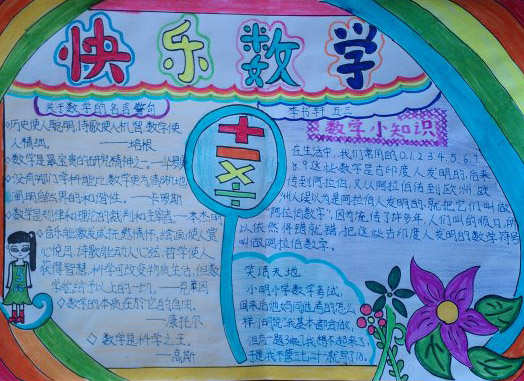 快乐数学
关于数学的名言警句
◇历史使人聪明,诗歌使人机智,数学使
人精细。 ——培根
◇数学是最宝贵的研究精神之一。——华罗庚
◇没有哪门学科能比数学更为清晰地
阐明自然界的和谐性。——卡罗斯
◇数学是规律和理论的裁判和主宰者——本杰明
◇音乐能激发或抚慰情怀,绘画使人赏
心悦目,诗歌能动人心弦,哲学使人
获得智慧,科学可改变物质生活,但数
学能给予以上的一切。——克莱因
◇数学的本质在于它的自由。
——康托尔
◇数学是科学之王。
——高斯
+
-
×
÷
数学小知识
在生活中,我们常用的0.1.2.3.4.5.6.7
8.9这些数字是古印度人发明的,后来
传到阿拉伯,又从阿拉伯传到欧洲,欧
洲人误以为是阿拉伯人发明的,就把它们叫做
"阿拉伯数字",因为流传了许多年,人们叫的顺口,所
以依然将错就错,把这些古印度人发明的数字符号
叫做阿拉伯数字。
笑项天地
小明小学数学考试,
回来后他妈问他考的怎么
样?小明说"我基本都会做,
但有一题3乘7我想不起来了,
于是我不管三七二十一就写了18。